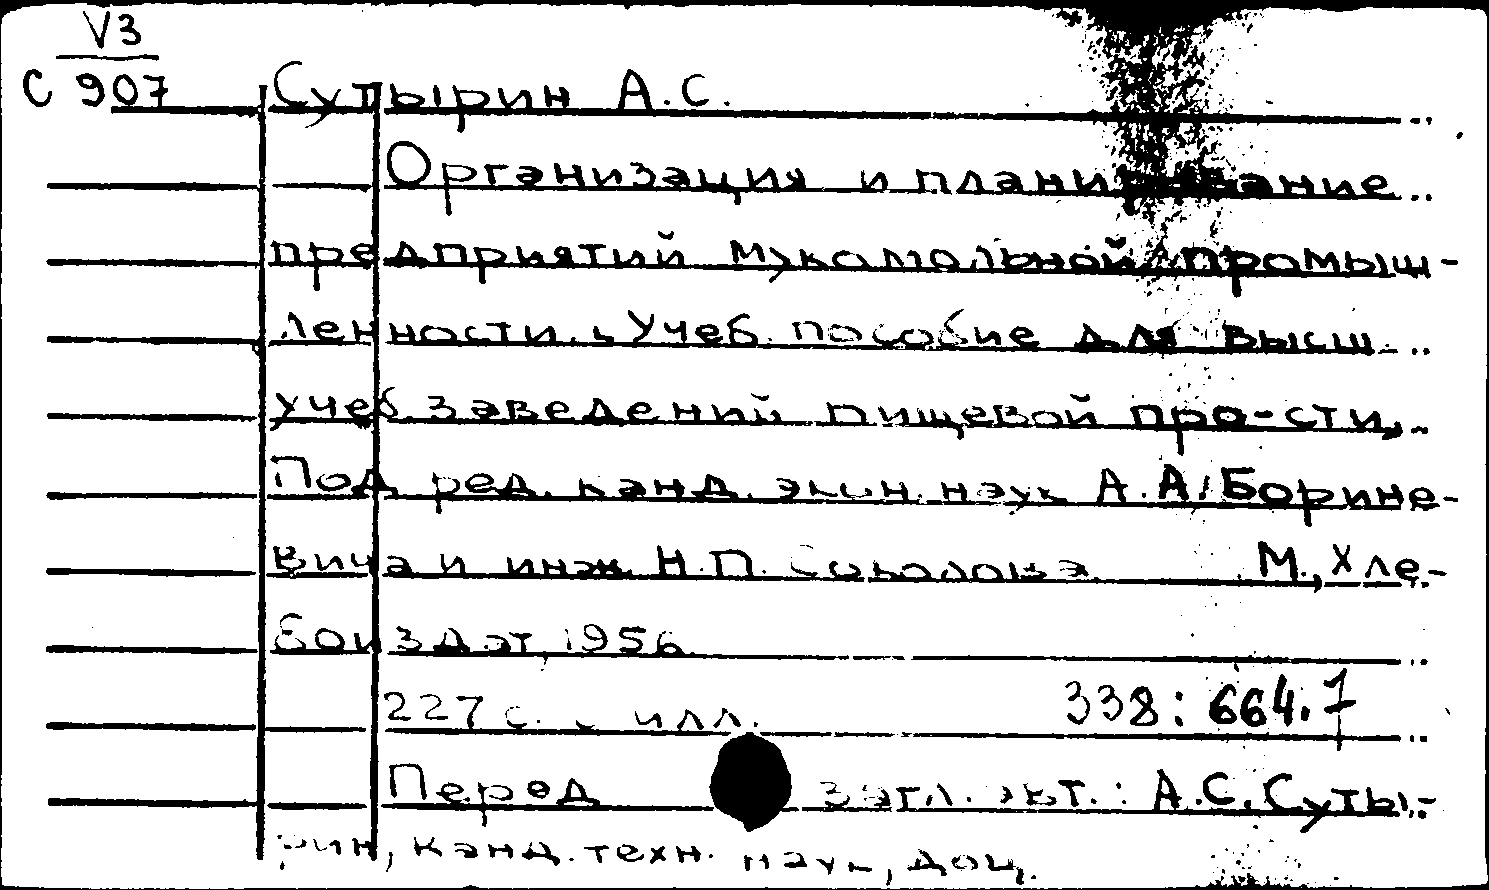 V3
С 907
Сутырин А.С.
Организация и планирование
предприятий мукомольной промыш-
ленности. Учеб. пособие для высш.
учеб. заведений пищевой про-сти,
Под ред. канд. экон. наук А.А. Борине-
вича и инж. Н.П. Соколова М., Хле-
боиздат, 1956.
227 с. с илл. 338:664.7
Перед загл. авт.: А.С. Суты-
рин, канд. техн. наук, доц.